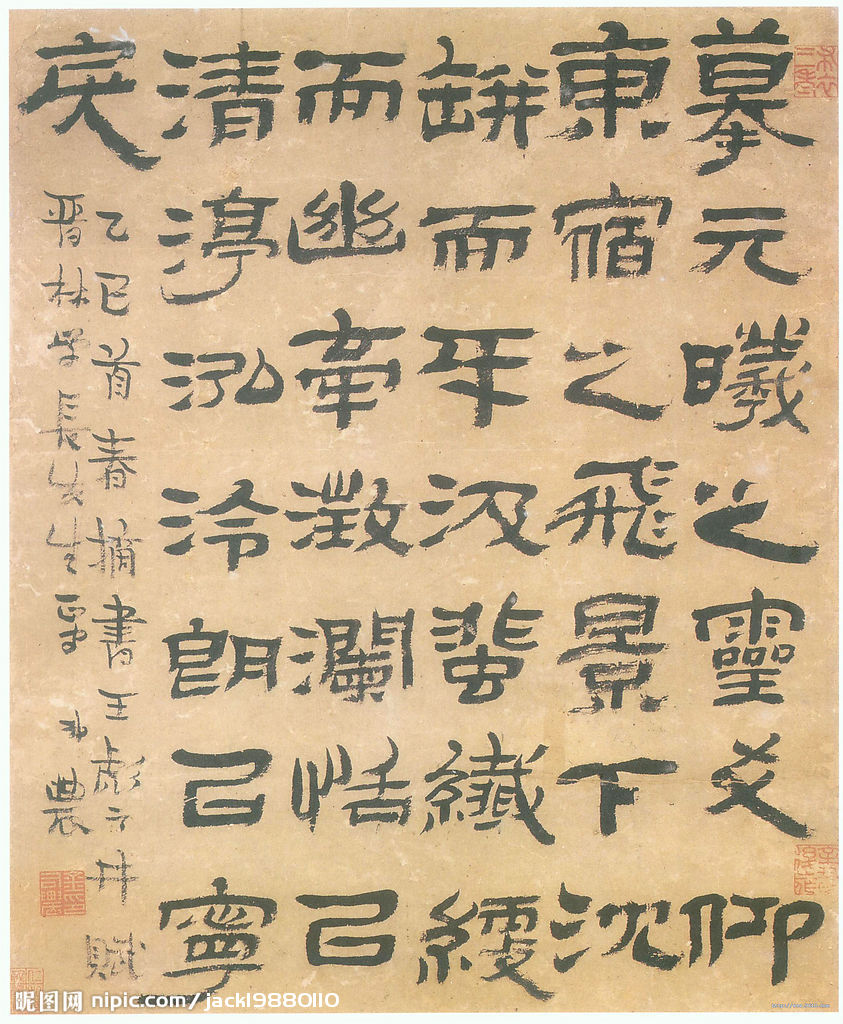 摹元曦之靈爻仰
東宿之飛景下沈
缾而牙汲蜚纖綆
而幽牽澂瀾恬己
清渟泓泠朗己寧
戾
乙巳首春摘書王彪之井賦
晋林学長先生 農
昵图网 nipic.com/jack19880110